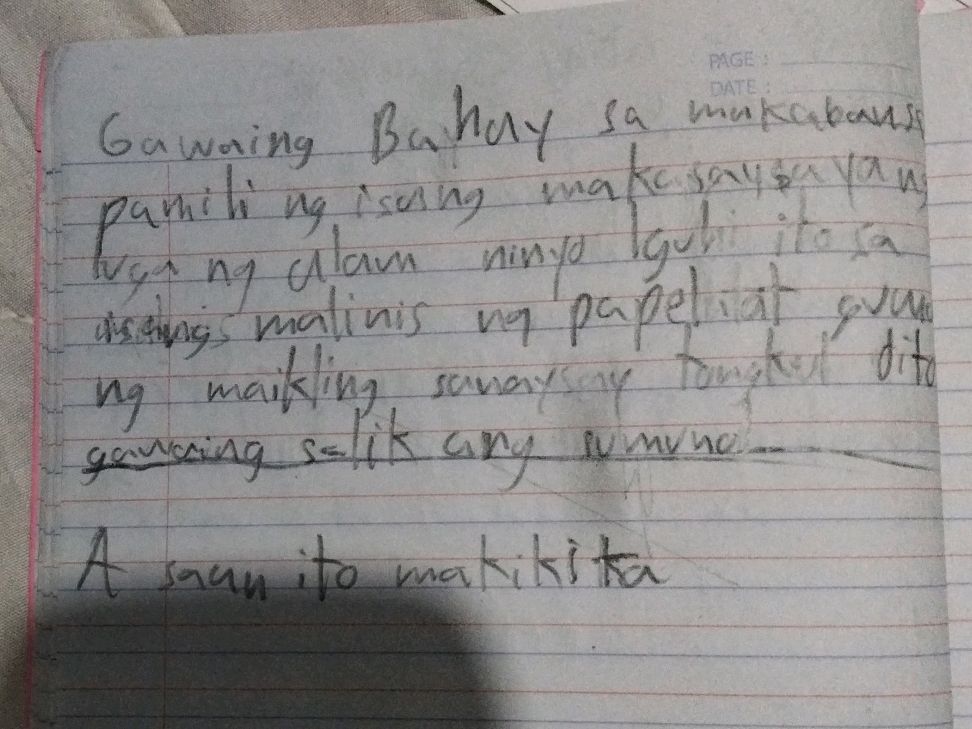 PAGE :
DATE :
Gawaing Bahay sa makabans
pamili ng isang makasaysayang
luga ng alam ninyo Iguhi ito sa
malinis ng papel at guum
ng maikling sanaysay tongkul dito
gawaing salik ang sumuno
A saan ito makikita